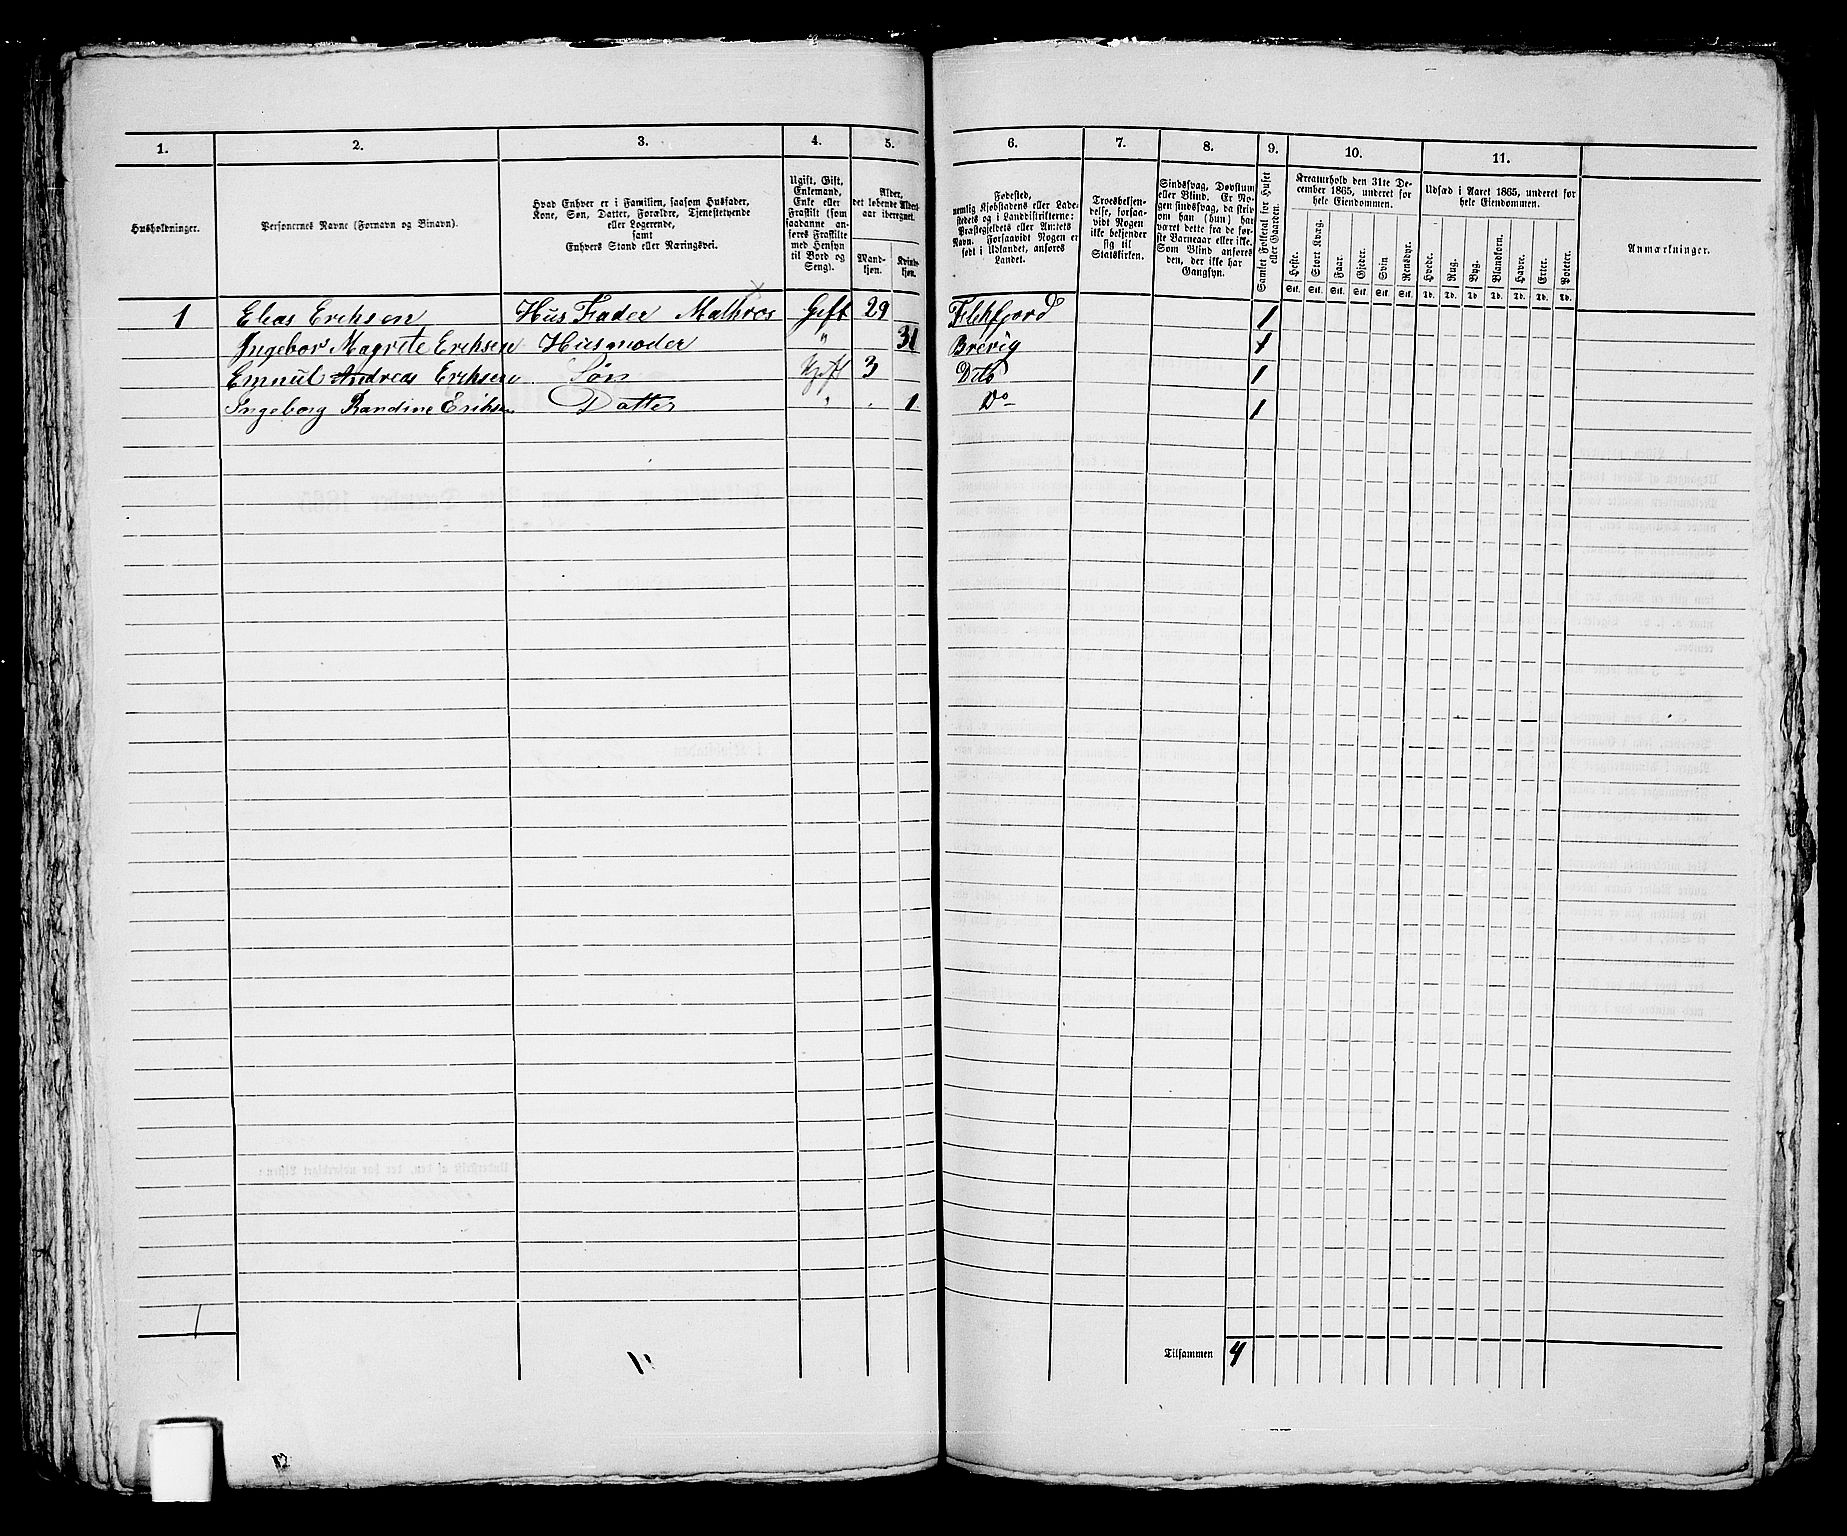 1. 2. 3. 4. 5. 6. 7. 8. 9. 10. 11.
Husholdninger.
Personernes Navne (Fornavn og Binavn).
Hvad Enhver er i Familien, saasom Husfader,
Kone, Søn, Datter, Forældre, Tjenestetyende
eller Logerende,
samt
Enhvers Stand eller Næringsvei.
Ugift, Gift,
Enkemand,
Enke eller
Fraskilt (som
saadanne an-
føres Fraskilte
med Hensyn
til Bord og
Seng).
Alder,
det løbende Alders-
aar iberegnet.
Mand-
kjøn.
Kvinde-
kjøn.
Fødested,
nemlig Kjøbstadens eller Lade-
stedets og i Landdistrikterne:
Præstegjeldets eller Amtets
Navn. Forsaavidt Nogen er
født i Udlandet, anføres
Landet.
Troesbekjen-
delse, forsaa-
vidt Nogen
ikke bekjender
sig til
Statskirken.
Sindssvag, Døvstum
eller Blind. Er No-
gen sindssvag, da skriv
om han (hun) har
været dette fra de før-
ste Barneaar eller ikke.
Som Blind anføres
den, der ikke har
Gangsyn.
Samlet Folketal for Huset
eller Gaarden.
Kreaturhold den 31te De-
cember 1865, underet for
hele Eiendommen.
Heste. Stort Kvæg. Faar. Gjeder. Svin Rensdyr.
Stk. Stk. Stk. Stk. Stk. Stk.
Udsæd i Aaret 1865, underet for
hele Eiendommen.
Hvede. Rug. Byg. Blandkorn. Havre. Erter. Poteter.
Td. Td. Td Td. Td. Td. Td.
Anmærkninger.
1 Elias Erichsen Hus Fader Mathros Gift 29 Flekfjord 1
Ingebor Magrete Erichsen Husmoder " 31 Brevig 1
Emnul Andreas Erichsen Søn Ugift 3 Dito 1
Ingeborg Randine Eriksen Datter " 1 Do 1
1
Tilsammen 4